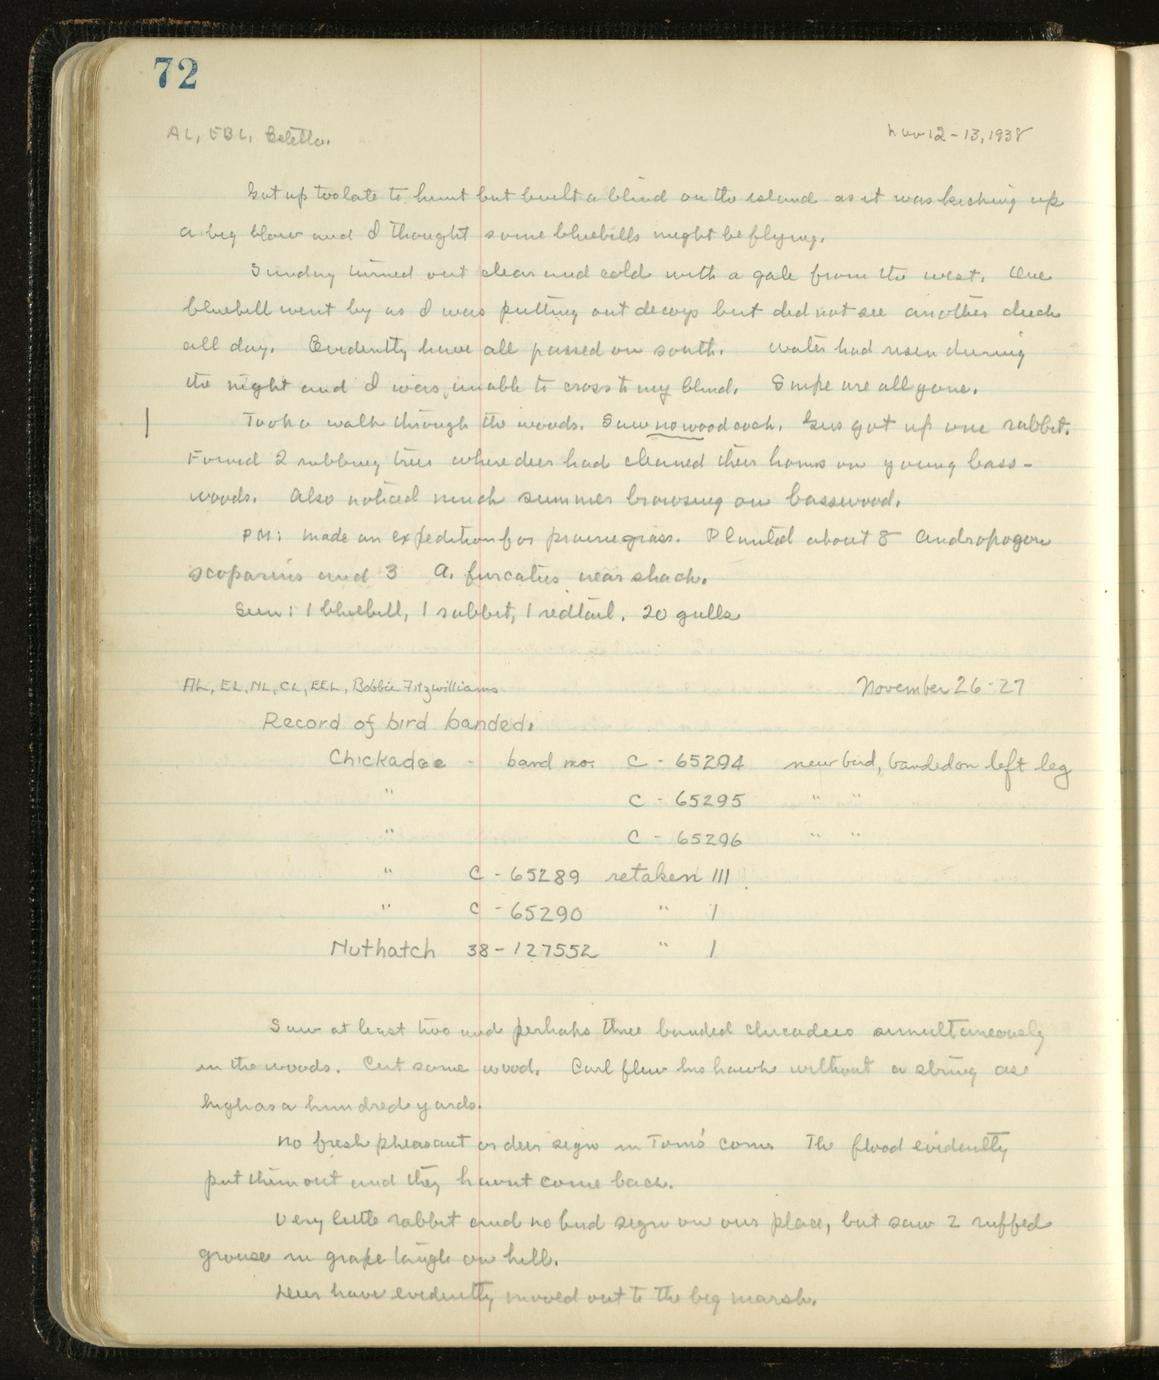 72
AL, EBL, Estella. Nov 12-13, 1938
Got up too late to hunt but built a blind on the island as it was kicking up
a big blow and I thought some bluebills might be flying.
Sunday turned out clear and cold with a gale from the west. One
bluebill went by as I was putting out decoys but did not see another duck
all day. Evidently have all passed on south. Water had risen during
the night and I was unable to cross to my blind. Snipe are all gone.
Took a walk through the woods. Saw no woodcock. Gus got up one rabbit.
Found 2 rubbing trees where deer had cleaned their horns on young bass-
woods. Also noticed much summer browsing on basswood.
PM: made an expedition for prairie grass. Planted about 8 Andropogon
scoparius and 3 A. furcatus near shack.
Seen: 1 bluebill, 1 rabbit, 1 redtail, 20 gulls
AL, EL, NL, CL, EEL, Bobbie Fitzwilliams November 26-27
Record of bird banded.
Chickadee - band no. C - 65294 new bird, banded on left leg
" C - 65295 " "
" C - 65296 " "
" C - 65289 retaken III
" C - 65290 " 1
Nuthatch 38-127552 " 1
Saw at least two and perhaps three banded chicadees simultaneously
in the woods. Cut some wood. Carl flew his hawk without a string as
high as a hundred yards.
No fresh pheasant or deer sign in Tom's corn. The flood evidently
put them out and they havnt come back.
Very little rabbit and no bird sign on our place, but saw 2 ruffed
grouse in grape tangle on hill.
Deer have evidently moved out to the big marsh.